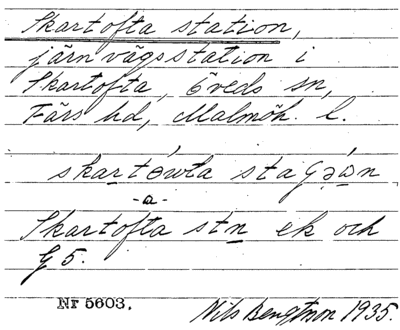 Skartofta station,
järnvägsstation i
Skartofta, Öveds sn,
Färs hd, Malmöh. l.
skartówta
-a-
Skartofta stn ek och
G 5.
Nr 5603. Nils Bengtsson 1935.